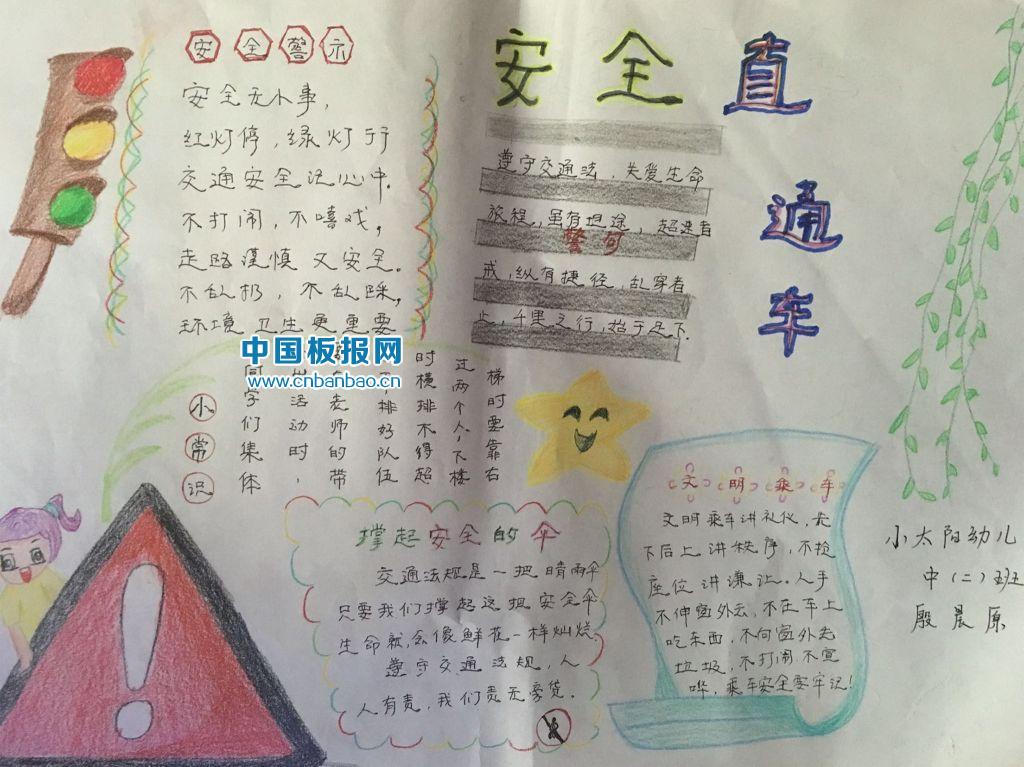 安全警示
安全无小事，
红灯停，绿灯于
交通安全记心中.
不打闹，不嘻戏，
走路谨慎又安全。
不乱扔，不乱踩，
环境卫生更重要
安全直通车
遵守交通法，关爱生命
旅程，虽有坦途，超速者
警句
戒，纵有捷径，乱穿者
止，千里之行，始于足下.
中国板报网
www.cnbanbao.cn
小常识
梯时要靠右
过两个人，下楼
时横排不得超
排好队伍
老师的带
出活动时，
同学们集体
撑起安全的伞
交通法规是一把晴雨伞
只要我们撑起这把安全伞
生命就会像鲜花一样灿烂
遵守交通法规，人
人有责，我们责无旁贷.
文明乘车
文明乘车讲礼仪，先
下后上讲秩序，不抢
座位讲谦让.人手
不伸窗外去，不在车上
吃东西，不向窗外丢
垃圾，不打闹，不宣
哗，乘车安全要牢记！
小太阳幼儿
中（二）班
殷晨原